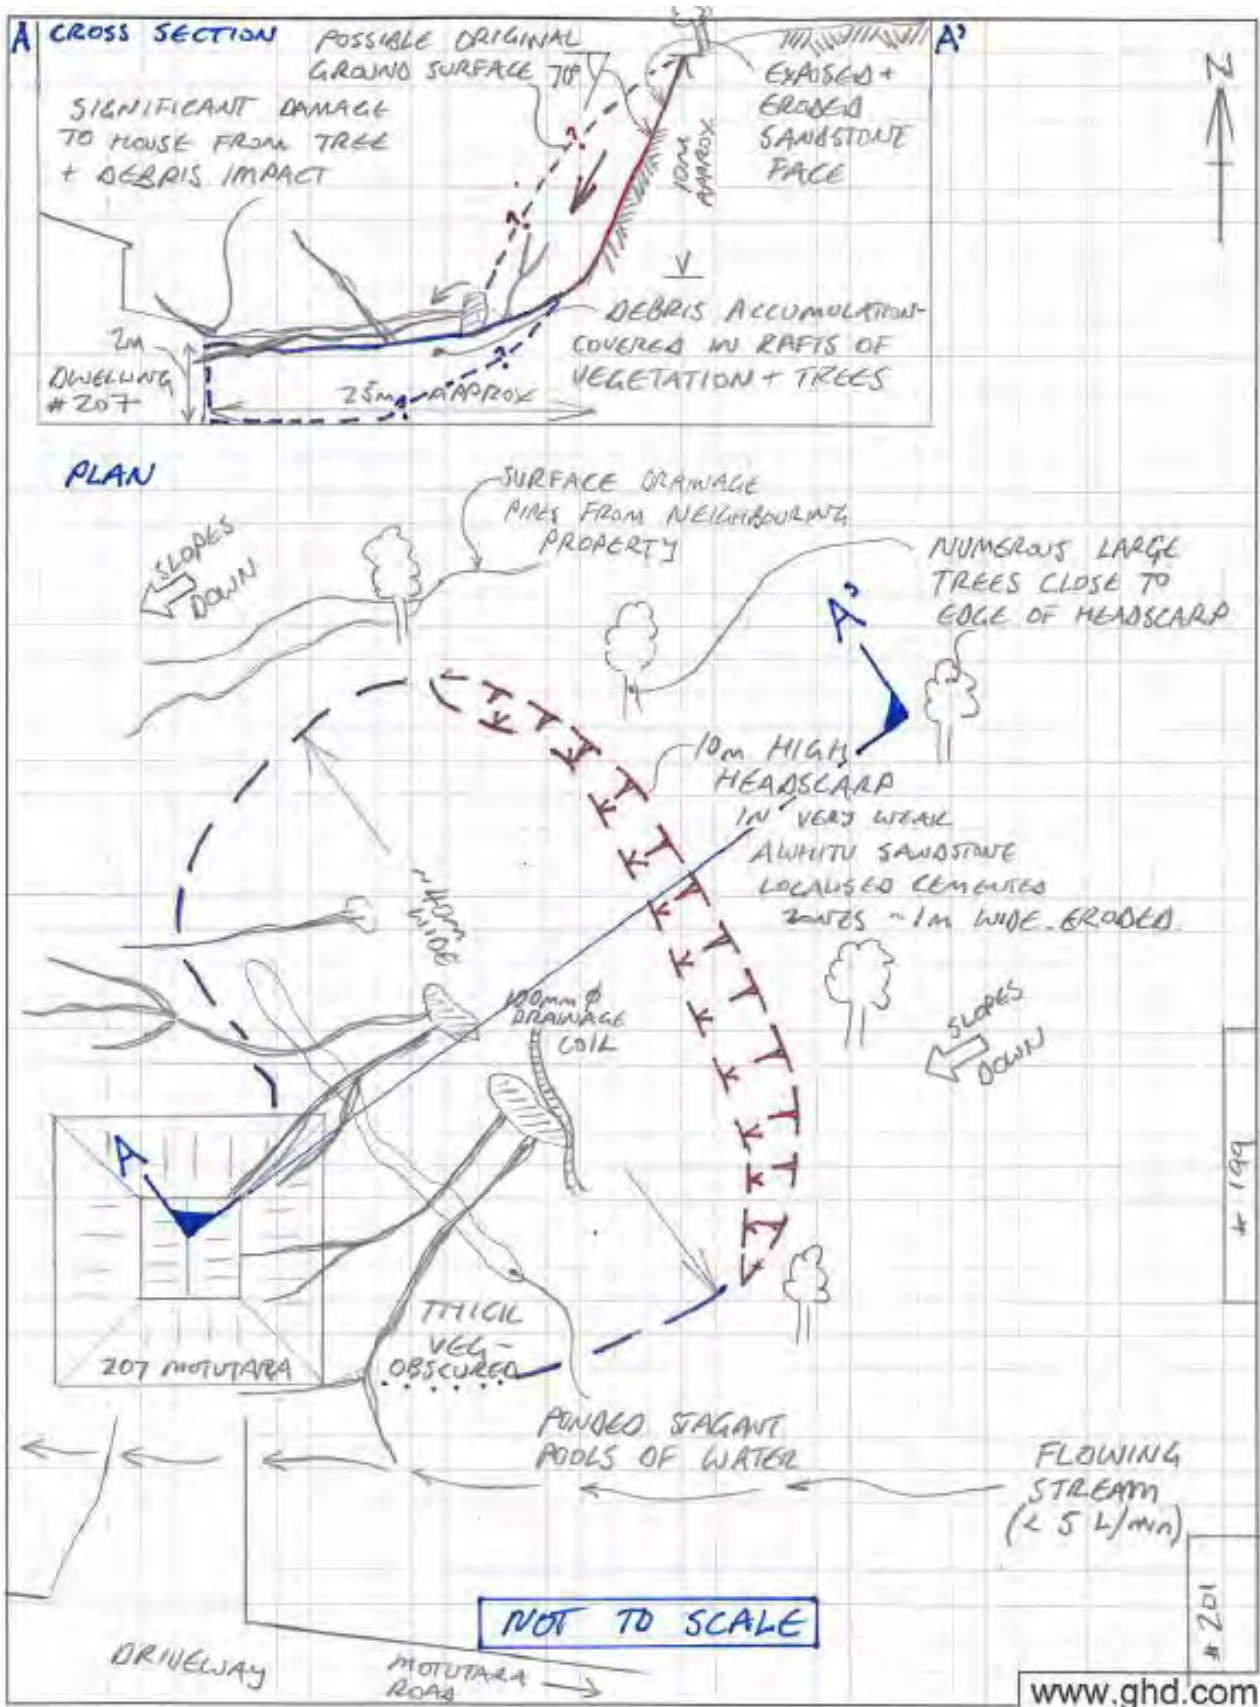 A CROSS SECTION
A'
POSSIBLE ORIGINAL
GROUND SURFACE
70°
SIGNIFICANT DAMAGE
TO HOUSE FROM TREE
+ DEBRIS IMPACT
EXPOSED +
ERODED
SANDSTONE
FACE
10m
APPROX
N
DEBRIS ACCUMULATION-
COVERED IN RAFTS OF
VEGETATION + TREES
2m
DWELLING
# 207
25m APPROX
PLAN
SURFACE DRAINAGE
PIPES FROM NEIGHBOURING
PROPERTY
SLOPES
DOWN
NUMEROUS LARGE
TREES CLOSE TO
EDGE OF HEADSCARP
A'
10m HIGH
HEADSCARP
IN VERY WEAK
AWHITU SANDSTONE
LOCALISED CEMENTED
ZONES ~1m WIDE. ERODED.
~40m
WIDE
100mm ϕ
DRAINAGE
COIL
SLOPES
DOWN
A
# 199
THICK
VEG-
OBSCURED
207 MOTUTARA
PONDED STAGANT
POOLS OF WATER
FLOWING
STREAM
(< 5 L/min)
NOT TO SCALE
# 201
DRIVEWAY
MOTUTARA
ROAD
www.ghd.com